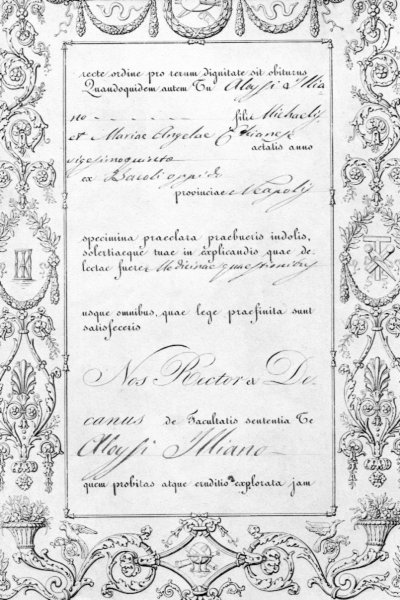 recte ordine pro rerum dignitate sit obiturus
Quandoquidem autem Tu Aloysi Illia
no - - - - - - filii Michaelis
et Mariae Angelae Chianese
aetatis anno
vigesimoquinto
ex Bacoli oppido
provinciae Neapolis
specimina praeclara praebueris indolis,
solertiaeque tuae in explicandis quae de
lectae fuere Medicinae quaestionibus
usque omnibus, quae lege praefinita sunt
satisfeceris
Nos Rector & De
canus de Facultatis sententia Te
Aloysi Illiano
quem probitas atque eruditio explorata jam